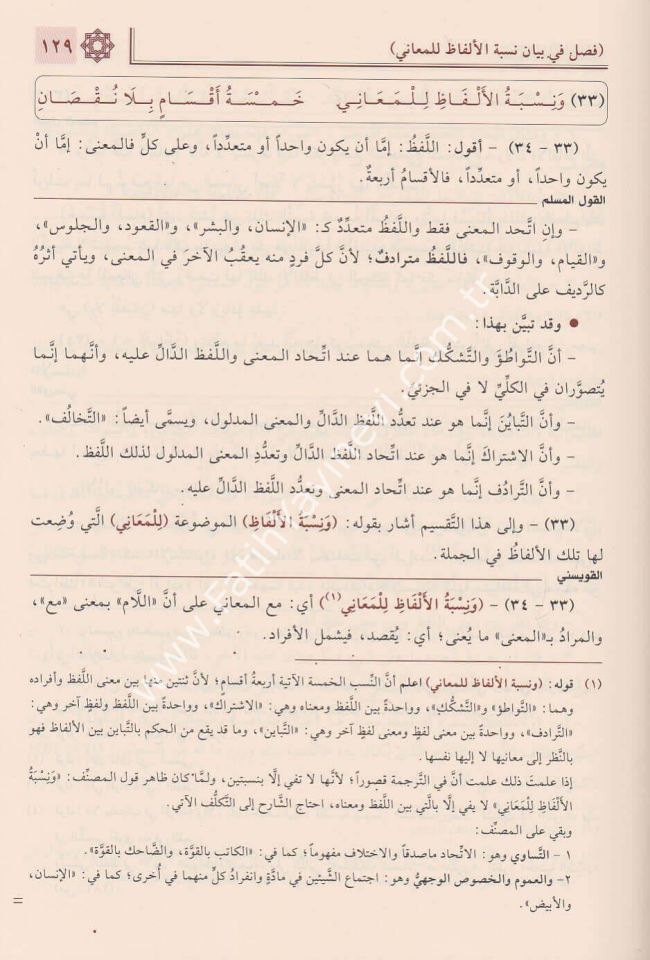 (فصل في بيان نسبة الألفاظ للمعاني)
١٢٩
(٣٣) وَنِسْبَةُ الأَلْفَاظِ لِلْمَعَانِي خَمْسَةُ أَقْسَامٍ بِلَا نُقْصَانِ
(٣٣ - ٣٤) - أقول: اللَّفظُ: إمَّا أن يكون واحداً أو متعدِّداً، وعلى كلٍّ فالمعنى: إمَّا أنْ
يكون واحداً، أو متعدِّداً، فالأقسامُ أربعةٌ.
القول المسلم
- وإنِ اتَّحد المعنى فقط واللَّفظُ متعدِّدٌ كـ: «الإنسان، والبشر»، و«القعود، والجلوس»،
و«القيام، والوقوف»، فاللَّفظُ مترادفٌ؛ لأنَّ كلَّ فردٍ منه يعقُبُ الآخرَ في المعنى، ويأتي أثرُهُ
كالرَّديف على الدَّابَّة.
● وقد تبيَّن بهذا:
- أنَّ التَّواطؤَ والتَّشكُّك إنَّما هما عند اتِّحاد المعنى واللَّفظ الدَّالِّ عليه، وأنَّهما إنَّما
يُتصوَّران في الكلِّيِّ لا في الجزئيِّ.
- وأنَّ التَّبايُنَ إنَّما هو عند تعدُّد اللَّفظ الدَّالِّ والمعنى المدلول، ويسمَّى أيضاً: «التَّخالُف».
- وأنَّ الاشتراكَ إنَّما هو عند اتحاد اللَّفظ الدَّالِّ وتعدُّدِ المعنى المدلول لذلك اللَّفظ.
- وأنَّ التَّرادُف إنَّما هو عند اتِّحاد المعنى وتعدُّد اللَّفظ الدَّالِّ عليه.
(٣٣) - وإلى هذا التَّقسيم أشار بقوله: (وَنِسْبَةُ الأَلْفَاظِ) الموضوعة (لِلْمَعَانِي) الَّتي وُضِعت
لها تلك الألفاظُ في الجملة.
القويسني
(٣٣ - ٣٤) - (وَنِسْبَةُ الأَلْفَاظِ لِلْمَعَانِي(١)) أي: مع المعاني على أنَّ «اللَّام» بمعنى «مع»،
والمرادُ بـ«المعنى» ما يُعنى؛ أي: يُقصد، فيشمل الأفراد.
(١) قوله: (ونسبة الألفاظ للمعاني) اعلم أنَّ النِّسب الخمسة الآتية أربعةُ أقسام؛ لأنَّ ثنتين منها بين معنى اللَّفظ وأفراده
وهما: «التَّواطؤ» و«التَّشكُّك»، وواحدةً بين اللَّفظ ومعناه وهي: «الاشتراك»، وواحدةً بين اللَّفظ ولفظٍ آخر وهي:
«التَّرادف»، وواحدةً بين معنى لفظٍ ومعنى لفظٍ آخر وهي: «التَّباين»، وما قد يقع من الحكم بالتَّباين بين الألفاظ فهو
بالنَّظر إلى معانيها لا إليها نفسها.
إذا علمتَ ذلك علمت أنَّ في التَّرجمة قصوراً؛ لأنَّها لا تفي إلَّا بنسبتين، ولمَّا كان ظاهر قول المصنِّف: «وَنِسْبَةُ
الأَلْفَاظِ لِلْمَعَانِي» لا يفي إلَّا بالَّتي بين اللَّفظ ومعناه، احتاج الشَّارح إلى التَّكلُّف الآتي.
وبقي على المصنِّف:
١ - التَّساوي وهو: الاتِّحاد ماصدقاً والاختلاف مفهوماً؛ كما في: «الكاتب بالقوَّة، والضَّاحك بالقوَّة».
٢- والعموم والخصوص الوجهيُّ وهو: اجتماع الشَّيئين في مادَّةٍ وانفرادُ كلٍّ منهما في أُخرى؛ كما في: «الإنسان،
والأبيض».
=
www.Fatihyayinevi.com.tr